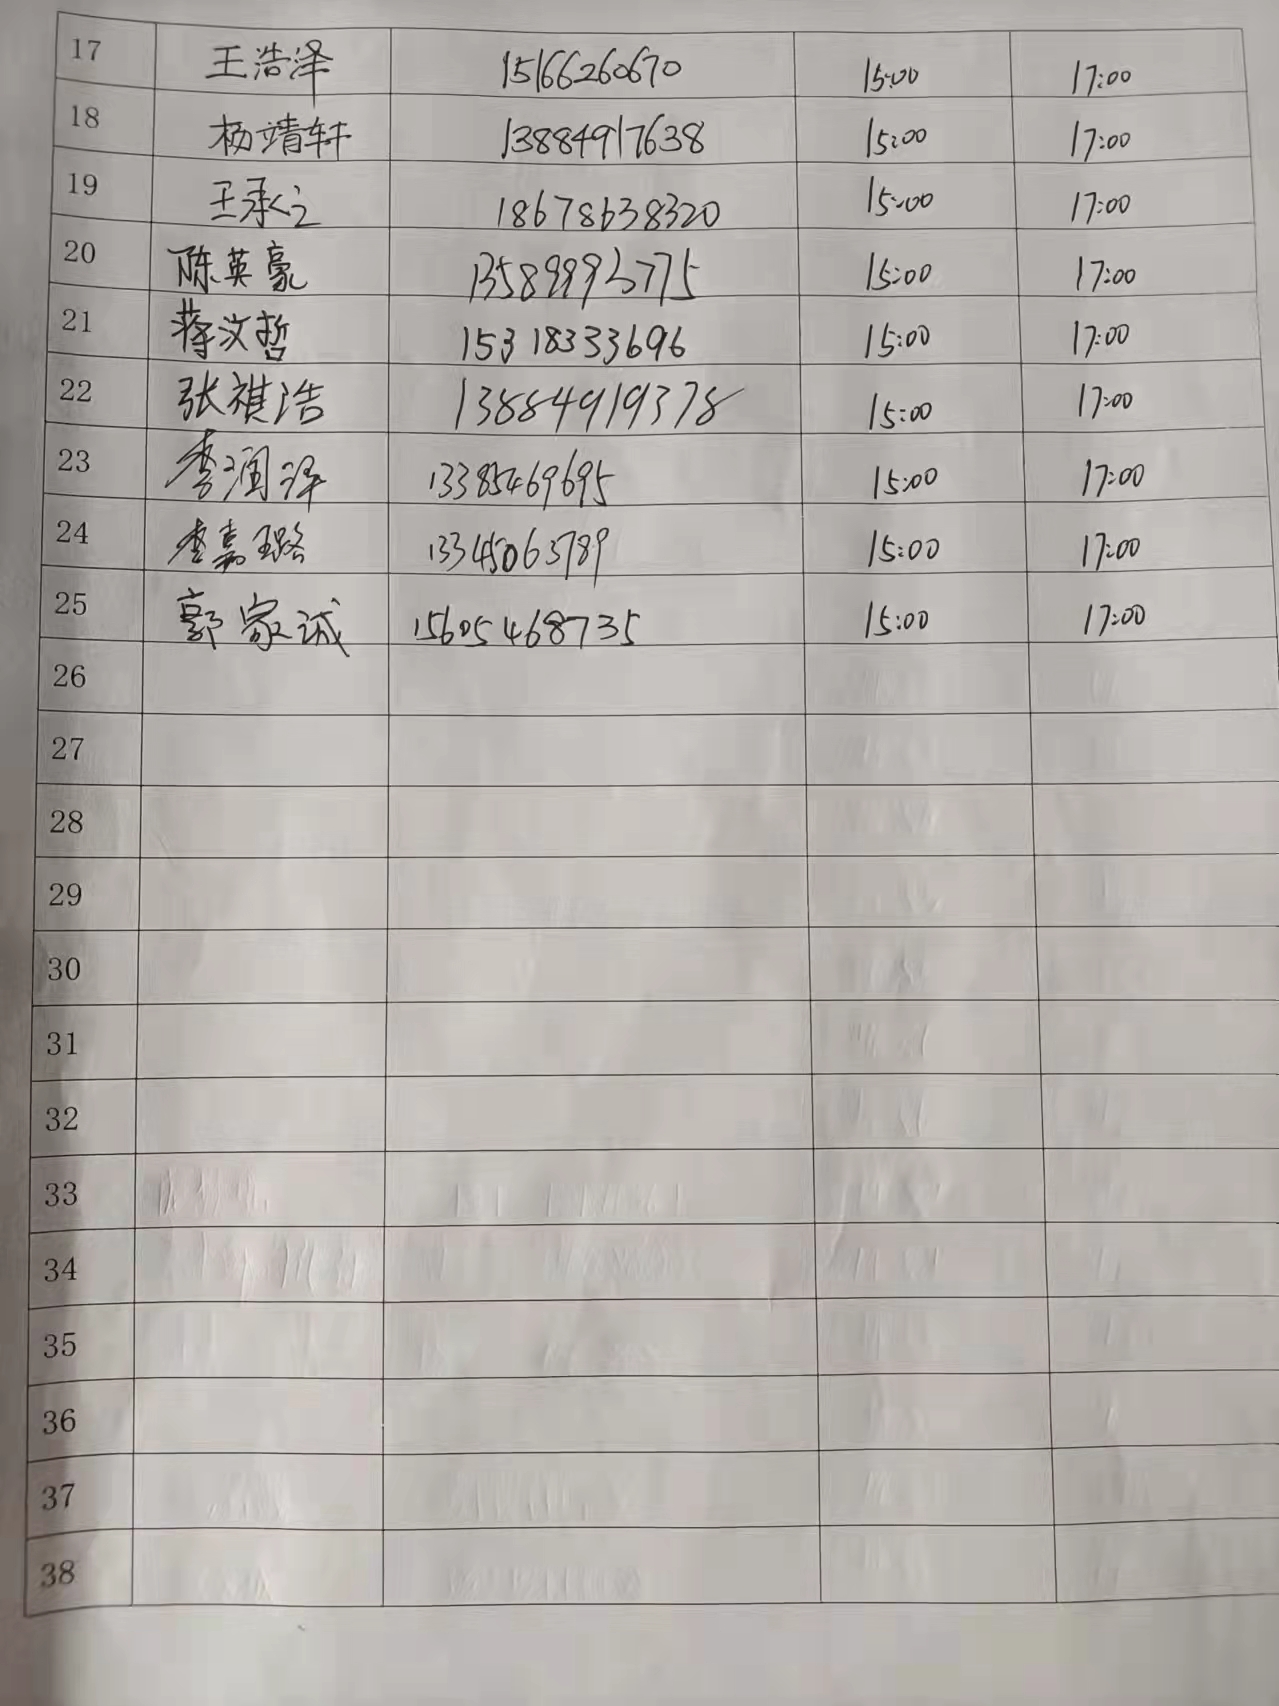 17 王浩泽 15166260670 15:00 17:00
18 杨靖轩 13884917638 15:00 17:00
19 王承之 18678638320 15:00 17:00
20 陈英豪 13589993775 15:00 17:00
21 蒋汶哲 15318333696 15:00 17:00
22 张祺浩 13884919378 15:00 17:00
23 李润泽 13385469695 15:00 17:00
24 李嘉璐 13345063789 15:00 17:00
25 郭家诚 15605468735 15:00 17:00
26
27
28
29
30
31
32
33
34
35
36
37
38